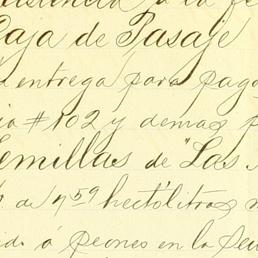 á la
Caja de Pasaje
entrega para pago
#102 y demas
Semillas de "Las
de 7⁵⁹ hectólitros
á peones en la